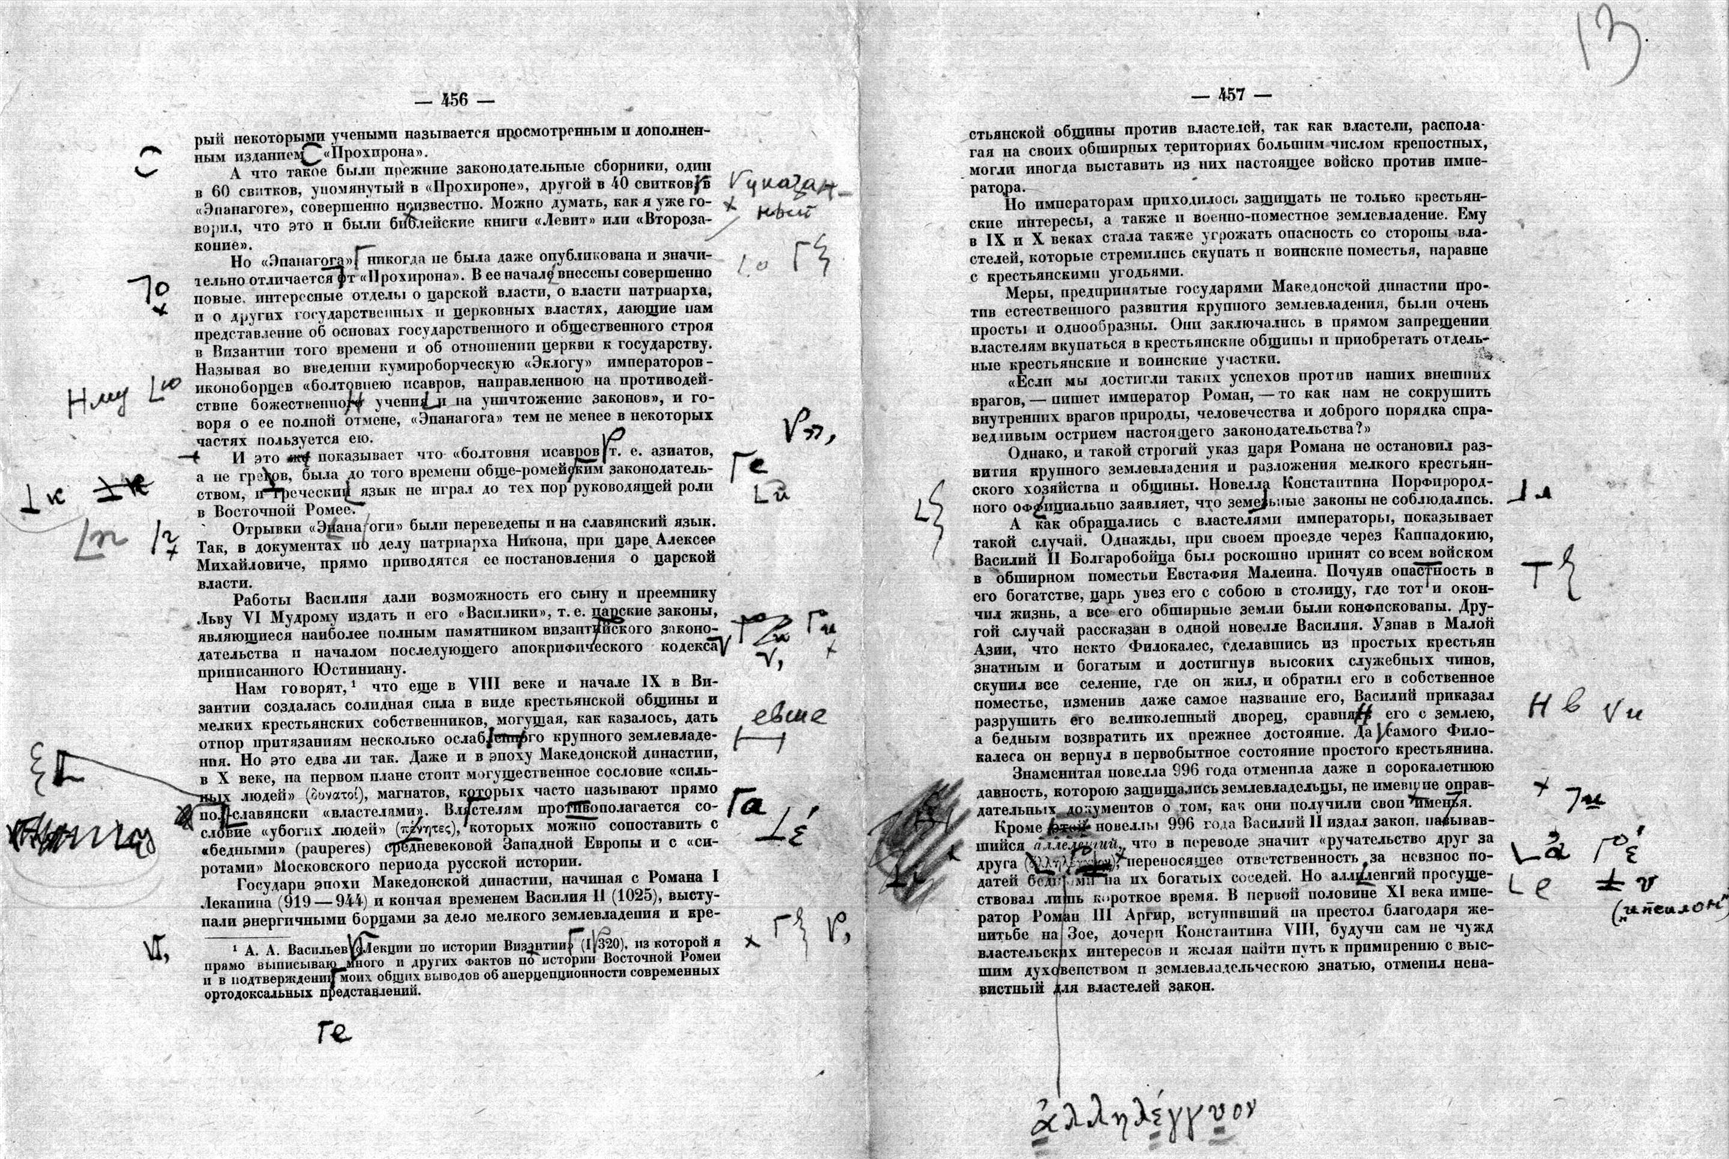 — 456 —
рый некоторыми учеными называется просмотренным и дополнен-
ным изданием «Прохирона».
А что такое были прежние законодательные сборники, один
в 60 свитков, упомянутый в «Прохироне», другой в 40 свитков в
«Эпанагоге», совершенно неизвестно. Можно думать, как я уже го-
ворил, что это и были библейские книги «Левит» или «Второза-
коние».
Но «Эпанагога» никогда не была даже опубликована и значи-
тельно отличается от «Прохирона». В ее начале внесены совершенно
новые, интересные отделы о царской власти, о власти патриарха,
и о других государственных и церковных властях, дающие нам
представление об основах государственного и общественного строя
в Византии того времени и об отношении церкви к государству.
Называя во введении кумироборческую «Эклогу» императоров-
иконоборцев «болтовнею исавров, направленною на противодей-
ствие божественно учени и на уничтожение законов», и го-
воря о ее полной отмене, «Эпанагога» тем не менее в некоторых
частях пользуется ею.
И это показывает что «болтовня исавров т. е. азиатов,
а не греков, была до того времени обще-ромейским законодатель-
ством, и греческий язык не играл до тех пор руководящей роли
в Восточной Ромее.
Отрывки «Эпанагоги» были переведены и на славянский язык.
Так, в документах по делу патриарха Никона, при царе Алексее
Михайловиче, прямо приводятся ее постановления о царской
власти.
Работы Василия дали возможность его сыну и преемнику
Льву VI Мудрому издать и его «Василики», т. е. царские законы,
являющиеся наиболее полным памятником византийского законо-
дательства и началом последующего апокрифического кодекса
приписанного Юстиниану.
Нам говорят,¹ что еще в VIII веке и начале IX в Ви-
зантии создалась солидная сила в виде крестьянской общины и
мелких крестьянских собственников, могущая, как казалось, дать
отпор притязаниям несколько ослабленного крупного землевладе-
ния. Но это едва ли так. Даже и в эпоху Македонской династии,
в X веке, на первом плане стоит могущественное сословие «силь-
ных людей» (δυνατοί), магнатов, которых часто называют прямо
по-славянски «властелами». Властелям противополагается со-
словие «убогих людей» (πένητες), которых можно сопоставить с
«бедными» (pauperes) средневековой Западной Европы и с «си-
ротами» Московского периода русской истории.
Государи эпохи Македонской династии, начиная с Романа I
Лекапина (919 — 944) и кончая временем Василия II (1025), высту-
пали энергичными борцами за дело мелкого землевладения и кре-
¹ А. А. Васильев «Лекции по истории Византии» (I, 320), из которой я
прямо выписываю много и других фактов по истории Восточной Ромеи
и в подтверждении моих общих выводов об аперцепционности современных
ортодоксальных представлений.
указан-
ный
Го
Нму ю
к
п
Ге
й
евше
Га
έ
ге
13
— 457 —
стьянской общины против властелей, так как властели, распола-
гая на своих обширных териториях большим числом крепостных,
могли иногда выставить из них настоящее войско против импе-
ратора.
Но императорам приходилось защищать не только крестьян-
ские интересы, а также и военно-поместное землевладение. Ему
в IX и X веках стала также угрожать опасность со стороны вла-
стелей, которые стремились скупать и воинские поместья, наравне
с крестьянскими угодьями.
Меры, предпринятые государями Македонской династии про-
тив естественного развития крупного землевладения, были очень
просты и однообразны. Они заключались в прямом запрещении
властелям вкупаться в крестьянские общины и приобретать отдель-
ные крестьянские и воинские участки.
«Если мы достигли таких успехов против наших внешних
врагов, — пишет император Роман, — то как нам не сокрушить
внутренних врагов природы, человечества и доброго порядка спра-
ведливым острием настоящего законодательства?»
Однако, и такой строгий указ царя Романа не остановил раз-
вития крупного землевладения и разложения мелкого крестьян-
ского хозяйства и общины. Новелла Константина Порфирород-
ного официально заявляет, что земельные законы не соблюдались.
А как обращались с властелями императоры, показывает
такой случай. Однажды, при своем проезде через Каппадокию,
Василий II Болгаробойца был роскошно принят со всем войском
в обширном поместьи Евстафия Малеина. Почуяв опастность в
его богатстве, царь увез его с собою в столицу, где тот и окон-
чил жизнь, а все его обширные земли были конфискованы. Дру-
гой случай рассказан в одной новелле Василия. Узнав в Малой
Азии, что некто Филокалес, сделавшись из простых крестьян
знатным и богатым и достигнув высоких служебных чинов,
скупил все селение, где он жил, и обратил его в собственное
поместье, изменив даже самое название его, Василий приказал
разрушить его великолепный дворец, сравня его с землею,
а бедным возвратить их прежнее достояние. Да самого Фило-
калеса он вернул в первобытное состояние простого крестьянина.
Знаменитая новелла 996 года отменила даже и сорокалетнюю
давность, которою защищались землевладельцы, не имевшие оправ-
дательных документов о том, как они получили свои именья.
Кроме этой новеллы 996 года Василий II издал закон, называв-
шийся аллеленгий, что в переводе значит «ручательство друг за
друга ( ), переносящее ответственность за невзнос по-
датей бедными на их богатых соседей. Но аллиленгий просуще-
ствовал лишь короткое время. В первой половине XI века импе-
ратор Роман III Аргир, вступивший на престол благодаря же-
нитьбе на Зое, дочери Константина VIII, будучи сам не чужд
властельских интересов и желая найти путь к примирению с выс-
шим духовенством и землевладельческою знатью, отменил нена-
вистный для властелей закон.
л
Н в и
и
ἀ έ
е υ
(„ипсилон“)
ἀλληλέγγυον